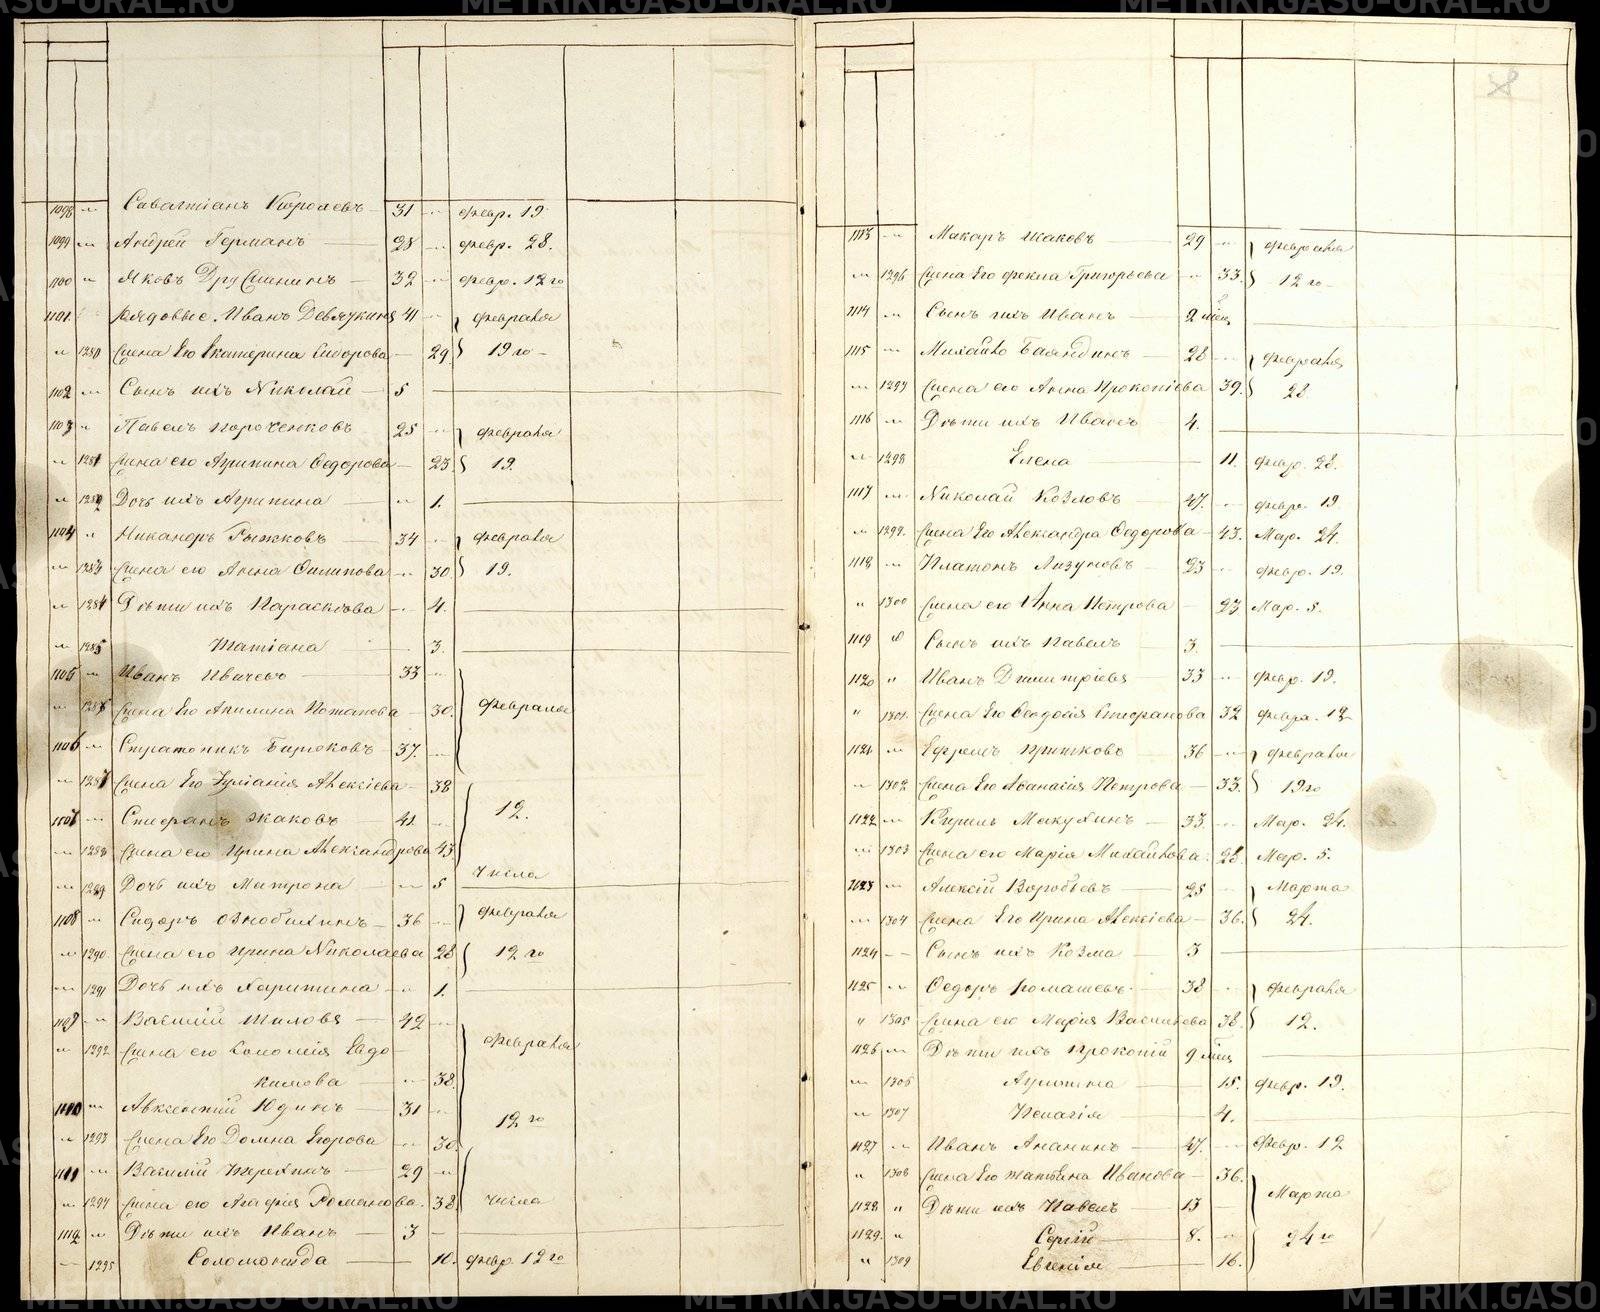 1098 Саватіанъ Королевъ 31 февр. 19
1099 Андрей Германъ 28 февр. 28.
1100 Яковъ Дружининъ 32 февр. 12го
1101 рядовые. Иванъ Девяткинъ 41 февраля
1280 Жена Его Екатерина Сидорова 29 19го
1102 Сынъ ихъ Николай 5
1103 Павелъ 25 февраля
1281 Жена его Агрипина Федорова 23 19.
1282 Дочь ихъ Агрипина 1.
1104 Никаноръ Рыжковъ 34 февраля
1283 Жена его Анна Филипова 30 19.
1284 Дѣти ихъ Параскева 4.
1285 Татіана 3.
1105 Иванъ Ивачевъ 33
1286 Жена Его Акилина Потапова 30. февраля
1106 Стратоникъ Бирюковъ 37.
1287 Жена Его Іуліанія Алексіева 38
1107 Стефанъ Жаковъ 41 12.
1288 Жена его Ирина Александрова 43
числа
1289 Дочь ихъ Матрона 5
1108 Сидоръ Ознобихинъ 36 февраля
1290 Жена его Ирина Николаева 28 12го
1291 Дочь ихъ Харитина 1.
1109 Василій Шиловъ 42
1292 Жена его Соломія Евдо февраля
кимова 38.
1110 Авксентій Юдинъ 31 12го
1293 Жена Его Домна Егорова 30
1111 Василій Терехинъ 29
1294 Жена его Агафія Романова. 38. числа
1112 Дѣти ихъ Иванъ 3
1295 Соломонида 10. февр. 12го
58
1113 Макаръ Жаковъ 29 февраля
1296 Жена Его Фекла Григорьева 33. 12го
1114 Сынъ ихъ Иванъ 2 мѣц
1115 Михайло Баяндинъ 28 февраля
1297 Жена его Анна Прокопіева 39. 28
1116 Дѣти ихъ Иванъ 4.
1298 Елена 11. февр. 28.
1117 Николай Козловъ 47. февр. 19
1299. Жена Его Александра Федорова 43. Мар. 24.
1118 Платонъ Лизуновъ 23 февр. 19.
1300 Жена его Анна Петрова 23 Мар. 5.
1119 Сынъ ихъ Павелъ 3.
1120 Иванъ Дмитріевъ 33 февр. 19.
1301. Жена Его Феодосія Стефанова 32 февра. 12
1121 Ефремъ Припковъ 36 февраля
1302 Жена Его Афанасія Петрова 33. 19го
1122 Кирилъ Макухинъ 33 Мар. 24.
1303 Жена его Марія Михайлова. 28. Мар. 5.
1123 Алексій Воробьевъ 25 Марта
1304 Жена Его Ирина Алексіева 36. 24.
1124 Сынъ ихъ Козма 3
1125 Федоръ Ромашевъ 38 февраля
1305 Жена его Марія Василіева 38. 12.
1126 Дѣти ихъ Прокопій 9 мѣц
1306 Агрипина 15. февр. 19.
1307 Пелагія 4.
1127 Иванъ Ананинъ 47. февр. 12
1308 Жена Его Татьяна Иванова 36.
Марта
1128 Дѣти ихъ Павелъ 13
1129. Сергій 8. 24го
1309 Евгенія 16.
METRIKI.GASO-URAL.RU